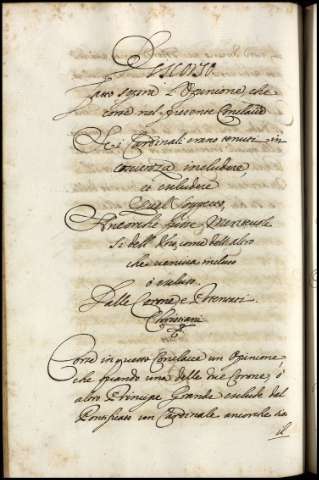 Discorso
Fatto sopra l'Opinione, che
corre nel presente Conclave
Se i Cardinali erano tenuti in
coscienza includere,
et escludere
Sugl Soggetto,
Ancorche fosse Meritevole
Sì dell' Uno, come dell'altro
che veniva incluso
ò escluso
Dalle Corone e Potentati
Christiani
Corre in questo Conclave un Opinione
che quando una delle due Corone, ò
altro Principe Grande esclude dal
Pontificato un Cardinale ancorche sia
il